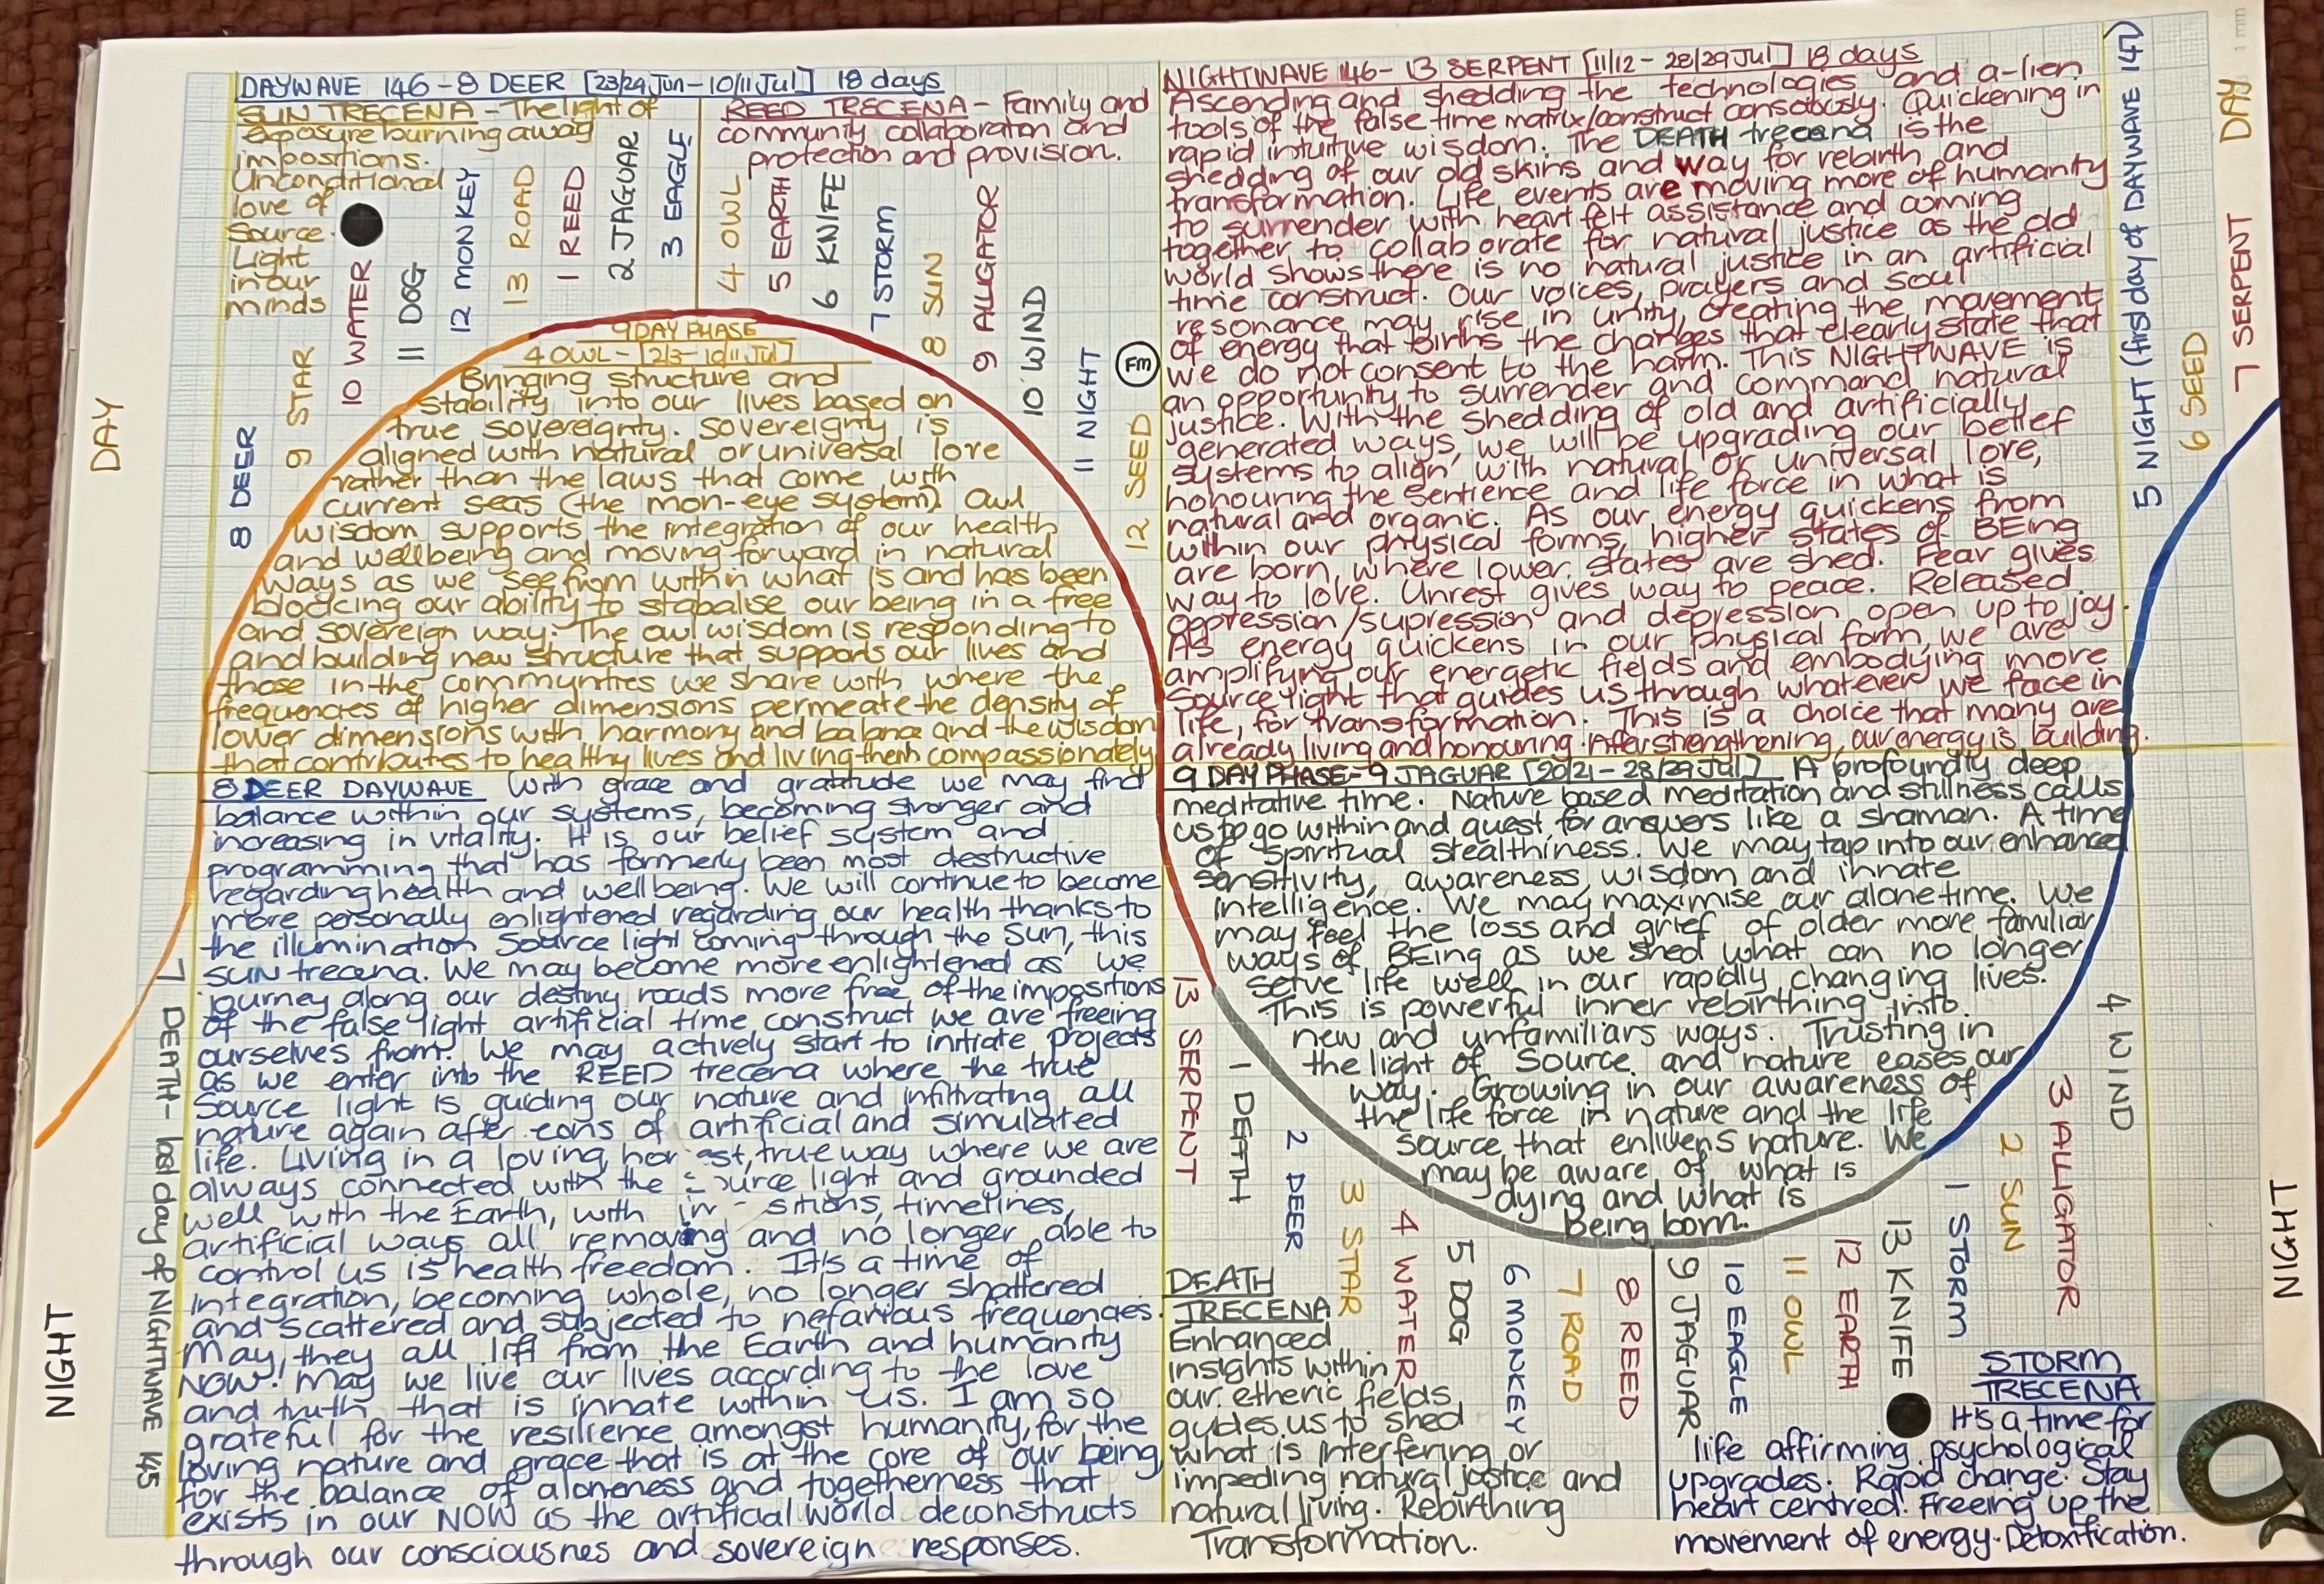 DAYWAVE 146 - 8 DEER [23/24 Jun - 10/11 Jul] 18 days
SUN TRECENA - The light of
exposure burning away
impositions.
Unconditional
love of
Source
Light
in our
minds
REED TRECENA - Family and
community collaboration and
protection and provision.
DAY
8 DEER
9 STAR
10 WATER
11 DOG
12 MONKEY
13 ROAD
1 REED
2 JAGUAR
3 EAGLE
4 OWL
5 EARTH
6 KNIFE
7 STORM
8 SUN
9 ALLIGATOR
10 WIND
11 NIGHT
12 SEED
Fm
9 DAY PHASE
4 OWL - [2/3 - 10/11 Jul]
Bringing structure and
stability into our lives based on
true sovereignty. Sovereignty is
aligned with natural or universal love
rather than the laws that come with
current seas (the mon-eye system). Owl
wisdom supports the integration of our health
and wellbeing and moving forward in natural
ways as we see from within what is and has been
blocking our ability to stabalise our being in a free
and sovereign way. The owl wisdom is responding to
and building new structure that supports our lives and
those in the communities we share with where the
frequencies of higher dimensions permeate the density of
lower dimensions with harmony and balance and the wisdom
that contributes to healthy lives and living them compassionately
8 DEER DAYWAVE With grace and gratitude we may find
balance within our systems, becoming stronger and
increasing in vitality. It is our belief system and
programming that has formerly been most destructive
regarding health and wellbeing. We will continue to become
more personally enlightened regarding our health thanks to
the illumination Source light coming through the sun, this
SUN trecena. We may become more enlightened as we
journey along our destiny roads more free of the impositions
of the false light artificial time construct we are freeing
ourselves from. We may actively start to initiate projects
as we enter into the REED trecena where the true
Source light is guiding our nature and infiltrating all
nature again after eons of artificial and simulated
life. Living in a loving, hor est, true way where we are
always connected with the urce light and grounded
well with the Earth, with sitions, timelines,
artificial ways all removing and no longer able to
control us is health freedom. It's a time of
integration, becoming whole, no longer shattered
and scattered and subjected to nefarious frequencies.
May they all lift from the Earth and humanity
NOW! May we live our lives according to the love
and truth that is innate within us. I am so
grateful for the resilience amongst humanity, for the
loving nature and grace that is at the core of our being,
for the balance of aloneness and togetherness that
exists in our NOW as the artificial world deconstructs
through our consciousnes and sovereign responses.
7 DEATH - last day of NIGHTWAVE 145
NIGHT
NIGHTWAVE 146 - 13 SERPENT [11/12 - 28/29 Jul] 18 days
Ascending and shedding the technologies and a-lien
tools of the false time matrix/construct consciously. Quickening in
rapid intuitive wisdom. The DEATH trecena is the
shedding of our old skins and way for rebirth and
transformation. Life events are moving more of humanity
to surrender with heart felt assistance and coming
together to collaborate for natural justice as the old
world shows there is no natural justice in an artificial
time construct. Our voices, prayers and soul
resonance may rise in unity, creating the movement
of energy that births the changes that clearly state that
we do not consent to the harm. This NIGHTWAVE is
an opportunity to surrender and command natural
justice. With the shedding of old and artificially
generated ways, we will be upgrading our belief
systems to align with natural or universal love,
honouring the sentience and life force in what is
natural and organic. As our energy quickens from
within our physical forms, higher states of BEing
are born, where lower states are shed. Fear gives
way to love. Unrest gives way to peace. Released
oppression/supression and depression open up to joy.
As energy quickens in our physical form, we are
amplifying our energetic fields and embodying more
Source light that guides us through whatever we face in
life, for transformation. This is a choice that many are
already living and honouring. After strengthening, our energy is building.
5 NIGHT (first day of DAYWAVE 147)
6 SEED
7 SERPENT
DAY
9 DAY PHASE - 9 JAGUAR [20/21 - 28/29 Jul] A profoundly deep
meditative time. Nature based meditation and stillness calls
us to go within and quest for answers like a shaman. A time
of spiritual stealthiness. We may tap into our enhanced
sensitivity, awareness, wisdom and innate
intelligence. We may maximise our alone time. We
may feel the loss and grief of older more familiar
ways of BEing as we shed what can no longer
serve life well in our rapidly changing lives.
This is powerful inner rebirthing into
new and unfamiliars ways. Trusting in
the light of Source and nature eases our
way. Growing in our awareness of
the life force in nature and the life
source that enlivens nature. We
may be aware of what is
dying and what is
being born.
13 SERPENT
1 DEATH
2 DEER
3 STAR
4 WATER
5 DOG
6 MONKEY
7 ROAD
8 REED
9 JAGUAR
10 EAGLE
11 OWL
12 EARTH
13 KNIFE
1 STORM
2 SUN
3 ALLIGATOR
4 WIND
NIGHT
DEATH
TRECENA
Enhanced
insights within
our etheric fields
guides us to shed
what is interfering or
impeding natural justice and
natural living. Rebirthing
Transformation.
STORM
TRECENA
It's a time for
life affirming psychological
upgrades. Rapid change. Stay
heart centred. Freeing up the
movement of energy. Detoxification.
1 mm